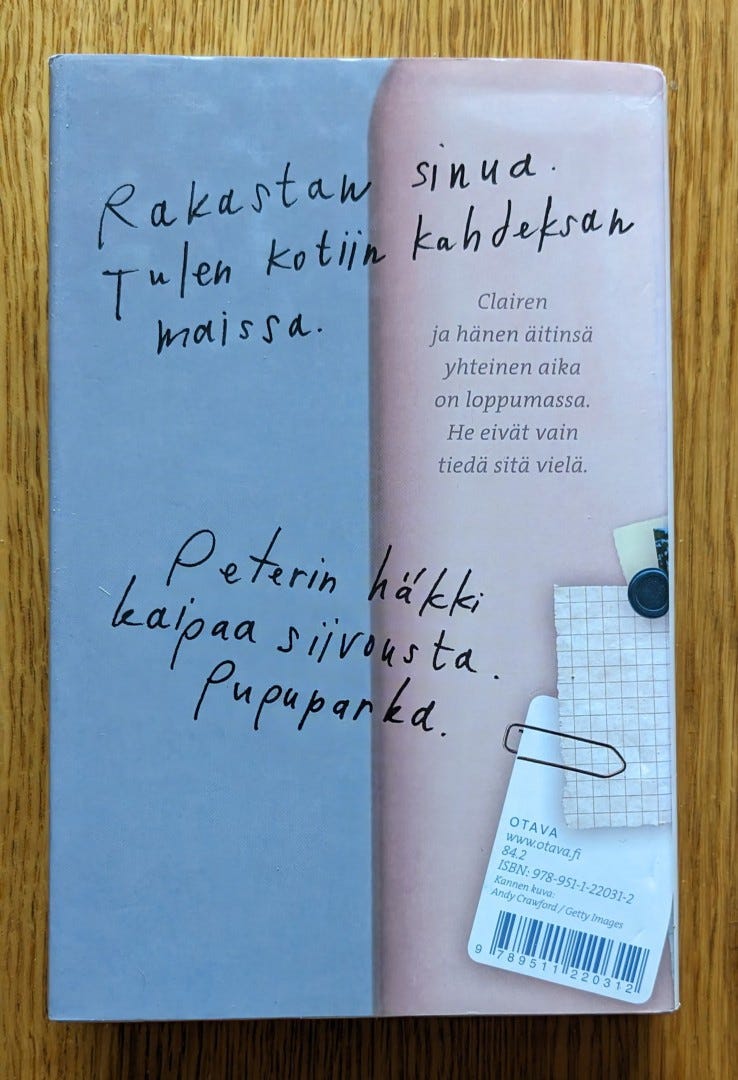 Rakastan sinua.
Tulen kotiin kahdeksan
maissa.
Clairen
ja hänen äitinsä
yhteinen aika
on loppumassa.
He eivät vain
tiedä sitä vielä.
Peterin häkki
kaipaa siivousta.
Pupuparka.
OTAVA
www.otava.fi
84.2
ISBN: 978-951-1-22031-2
Kannen kuva:
Andy Crawford / Getty Images
9 789511 220312